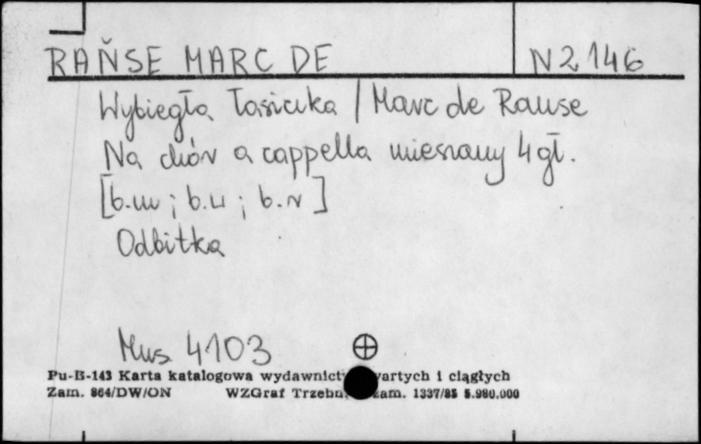 RAŇSE MARC DE N2146
Wybiegła Łasiczka / Marc de Ranse
Na chór a cappella mieszany 4 gł.
[b.m ; b.w ; b.r]
Odbitka
Mus 4103
Pu-B-143 Karta katalogowa wydawnict artych i ciągłych
Zam. 864/DW/ON WZGraf Trzebn am. 1337/85 5.980.000